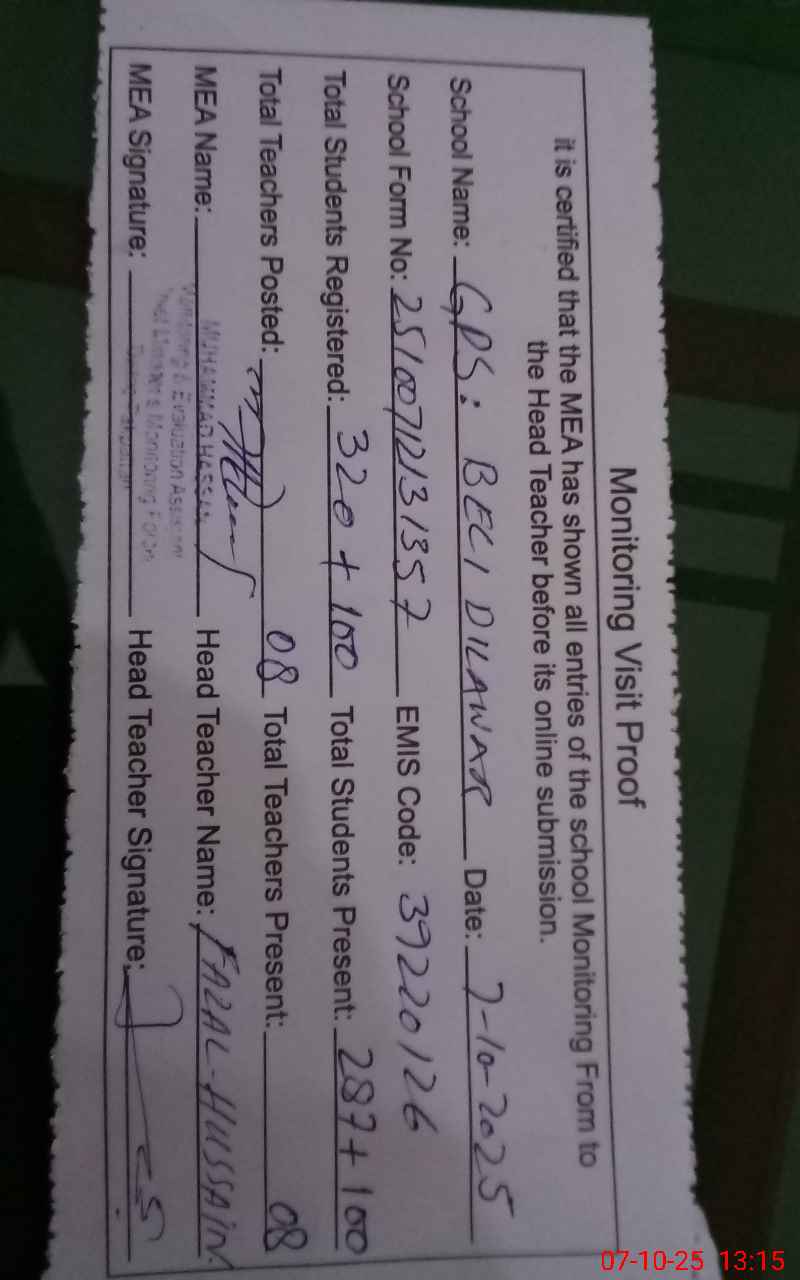 Monitoring Visit Proof
it is certified that the MEA has shown all entries of the school Monitoring From to
the Head Teacher before its online submission.
School Name: GPS: BELI DILAWAR Date: 7-10-2025
School Form No: 25100712131357 EMIS Code: 39220126
Total Students Registered: 320 + 100 Total Students Present: 287 + 100
Total Teachers Posted: 08 Total Teachers Present: 08
MEA Name: Head Teacher Name: FAZAL-HUSSAIN
MUHAMMAD HASSAN
Monitoring & Evaluation Assistant
MEA Signature: Head Teacher Signature:
07-10-25 13:15